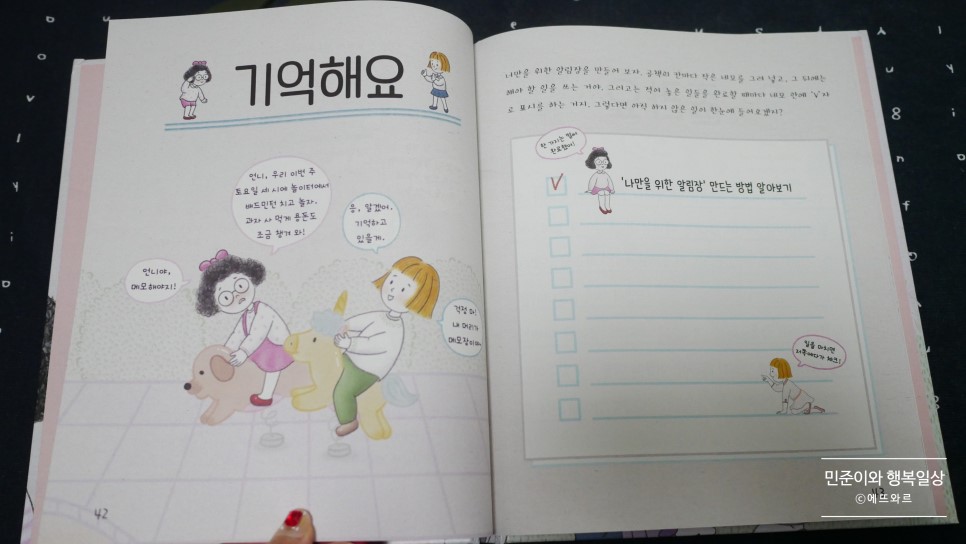 기억해요
언니, 우리 이번 주
토요일 세 시에 놀이터에서
배드민턴 치고 놀자.
과자 사 먹게 용돈도
조금 챙겨 와!
응, 알겠어.
기억하고
있을게.
언니야,
메모해야지!
걱정 마!
내 머리가
메모장이야.
42
나만을 위한 알림장을 만들어 보자. 공책의 칸마다 작은 네모를 그려 넣고, 그 뒤에는
해야 할 일을 쓰는 거야. 그리고는 적어 놓은 일들을 완료할 때마다 네모 안에 '√'자
로 표시를 하는 거지. 그렇다면 아직 하지 않은 일이 한눈에 들어오겠지?
한 가지는 벌써
완료했어!
√ '나만을 위한 알림장' 만드는 방법 알아보기
일을 마치면
차례대로 체크!
민준이와 행복일상
©에뜨와르